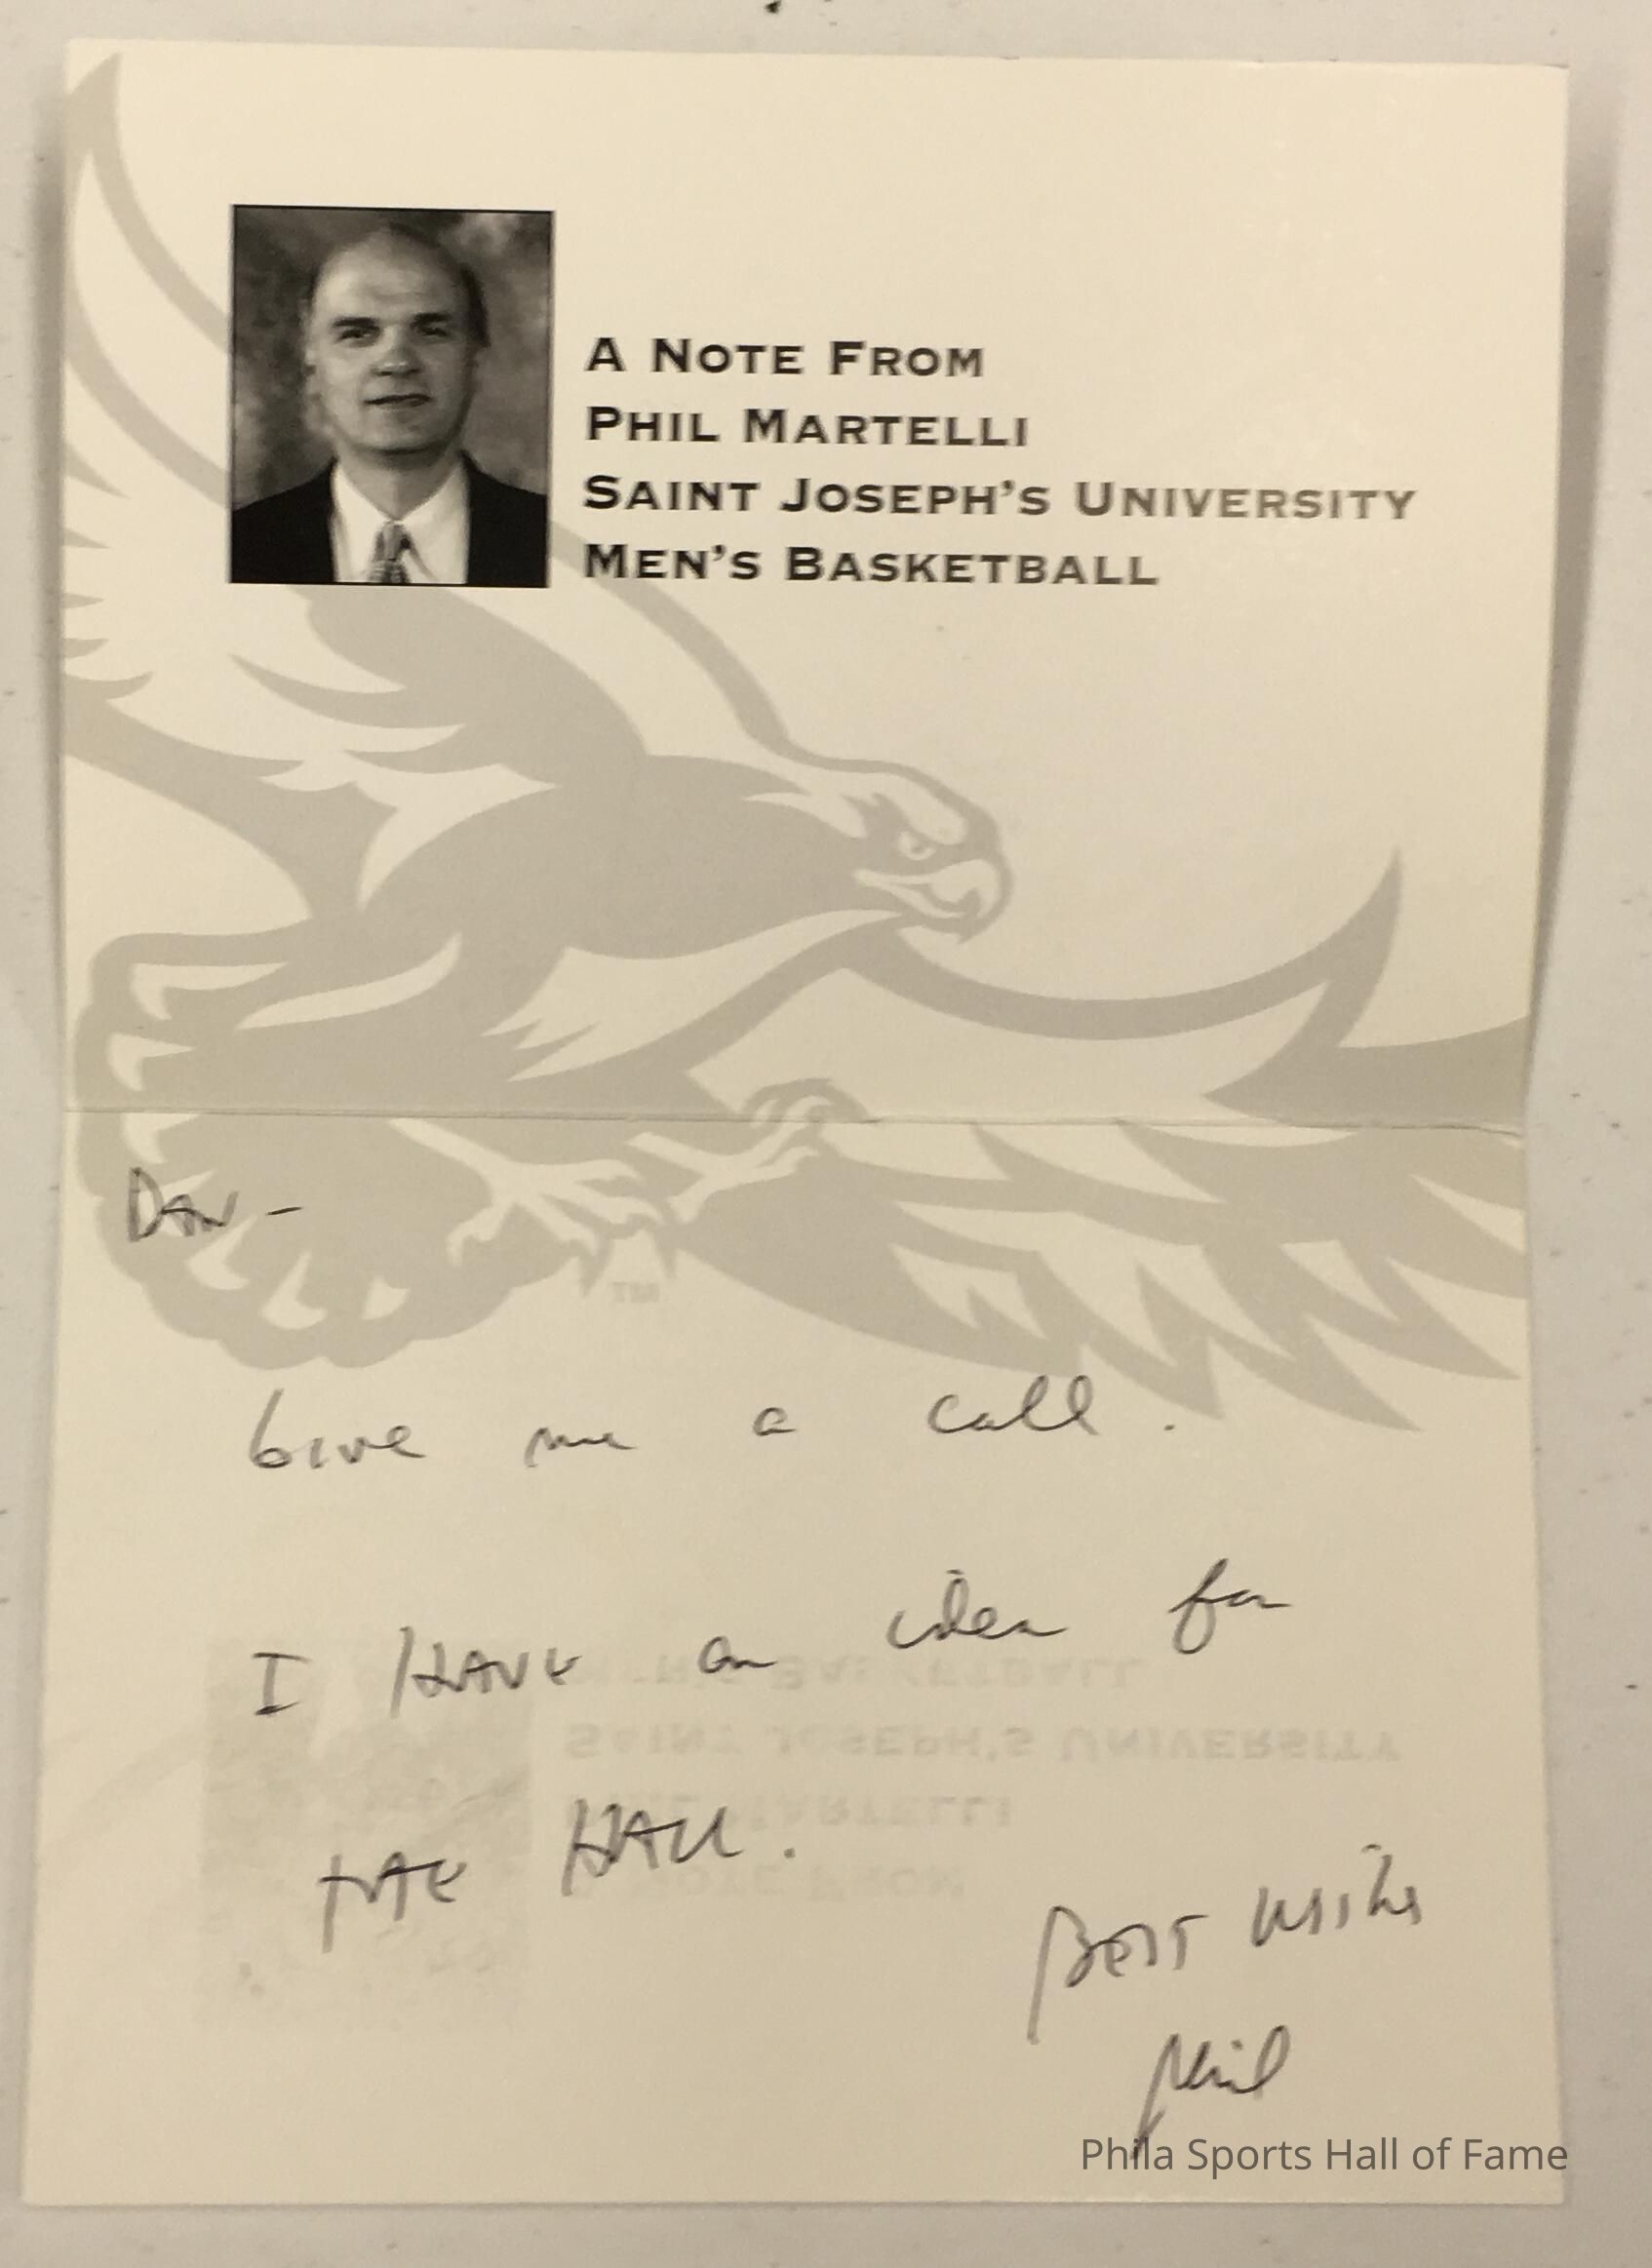 A NOTE FROM
PHIL MARTELLI
SAINT JOSEPH'S UNIVERSITY
MEN'S BASKETBALL
TM
DAN -
Give me a call.
I HAVE an idea for
THE HALL.
BEST Wishes
Phil
Phila Sports Hall of Fame